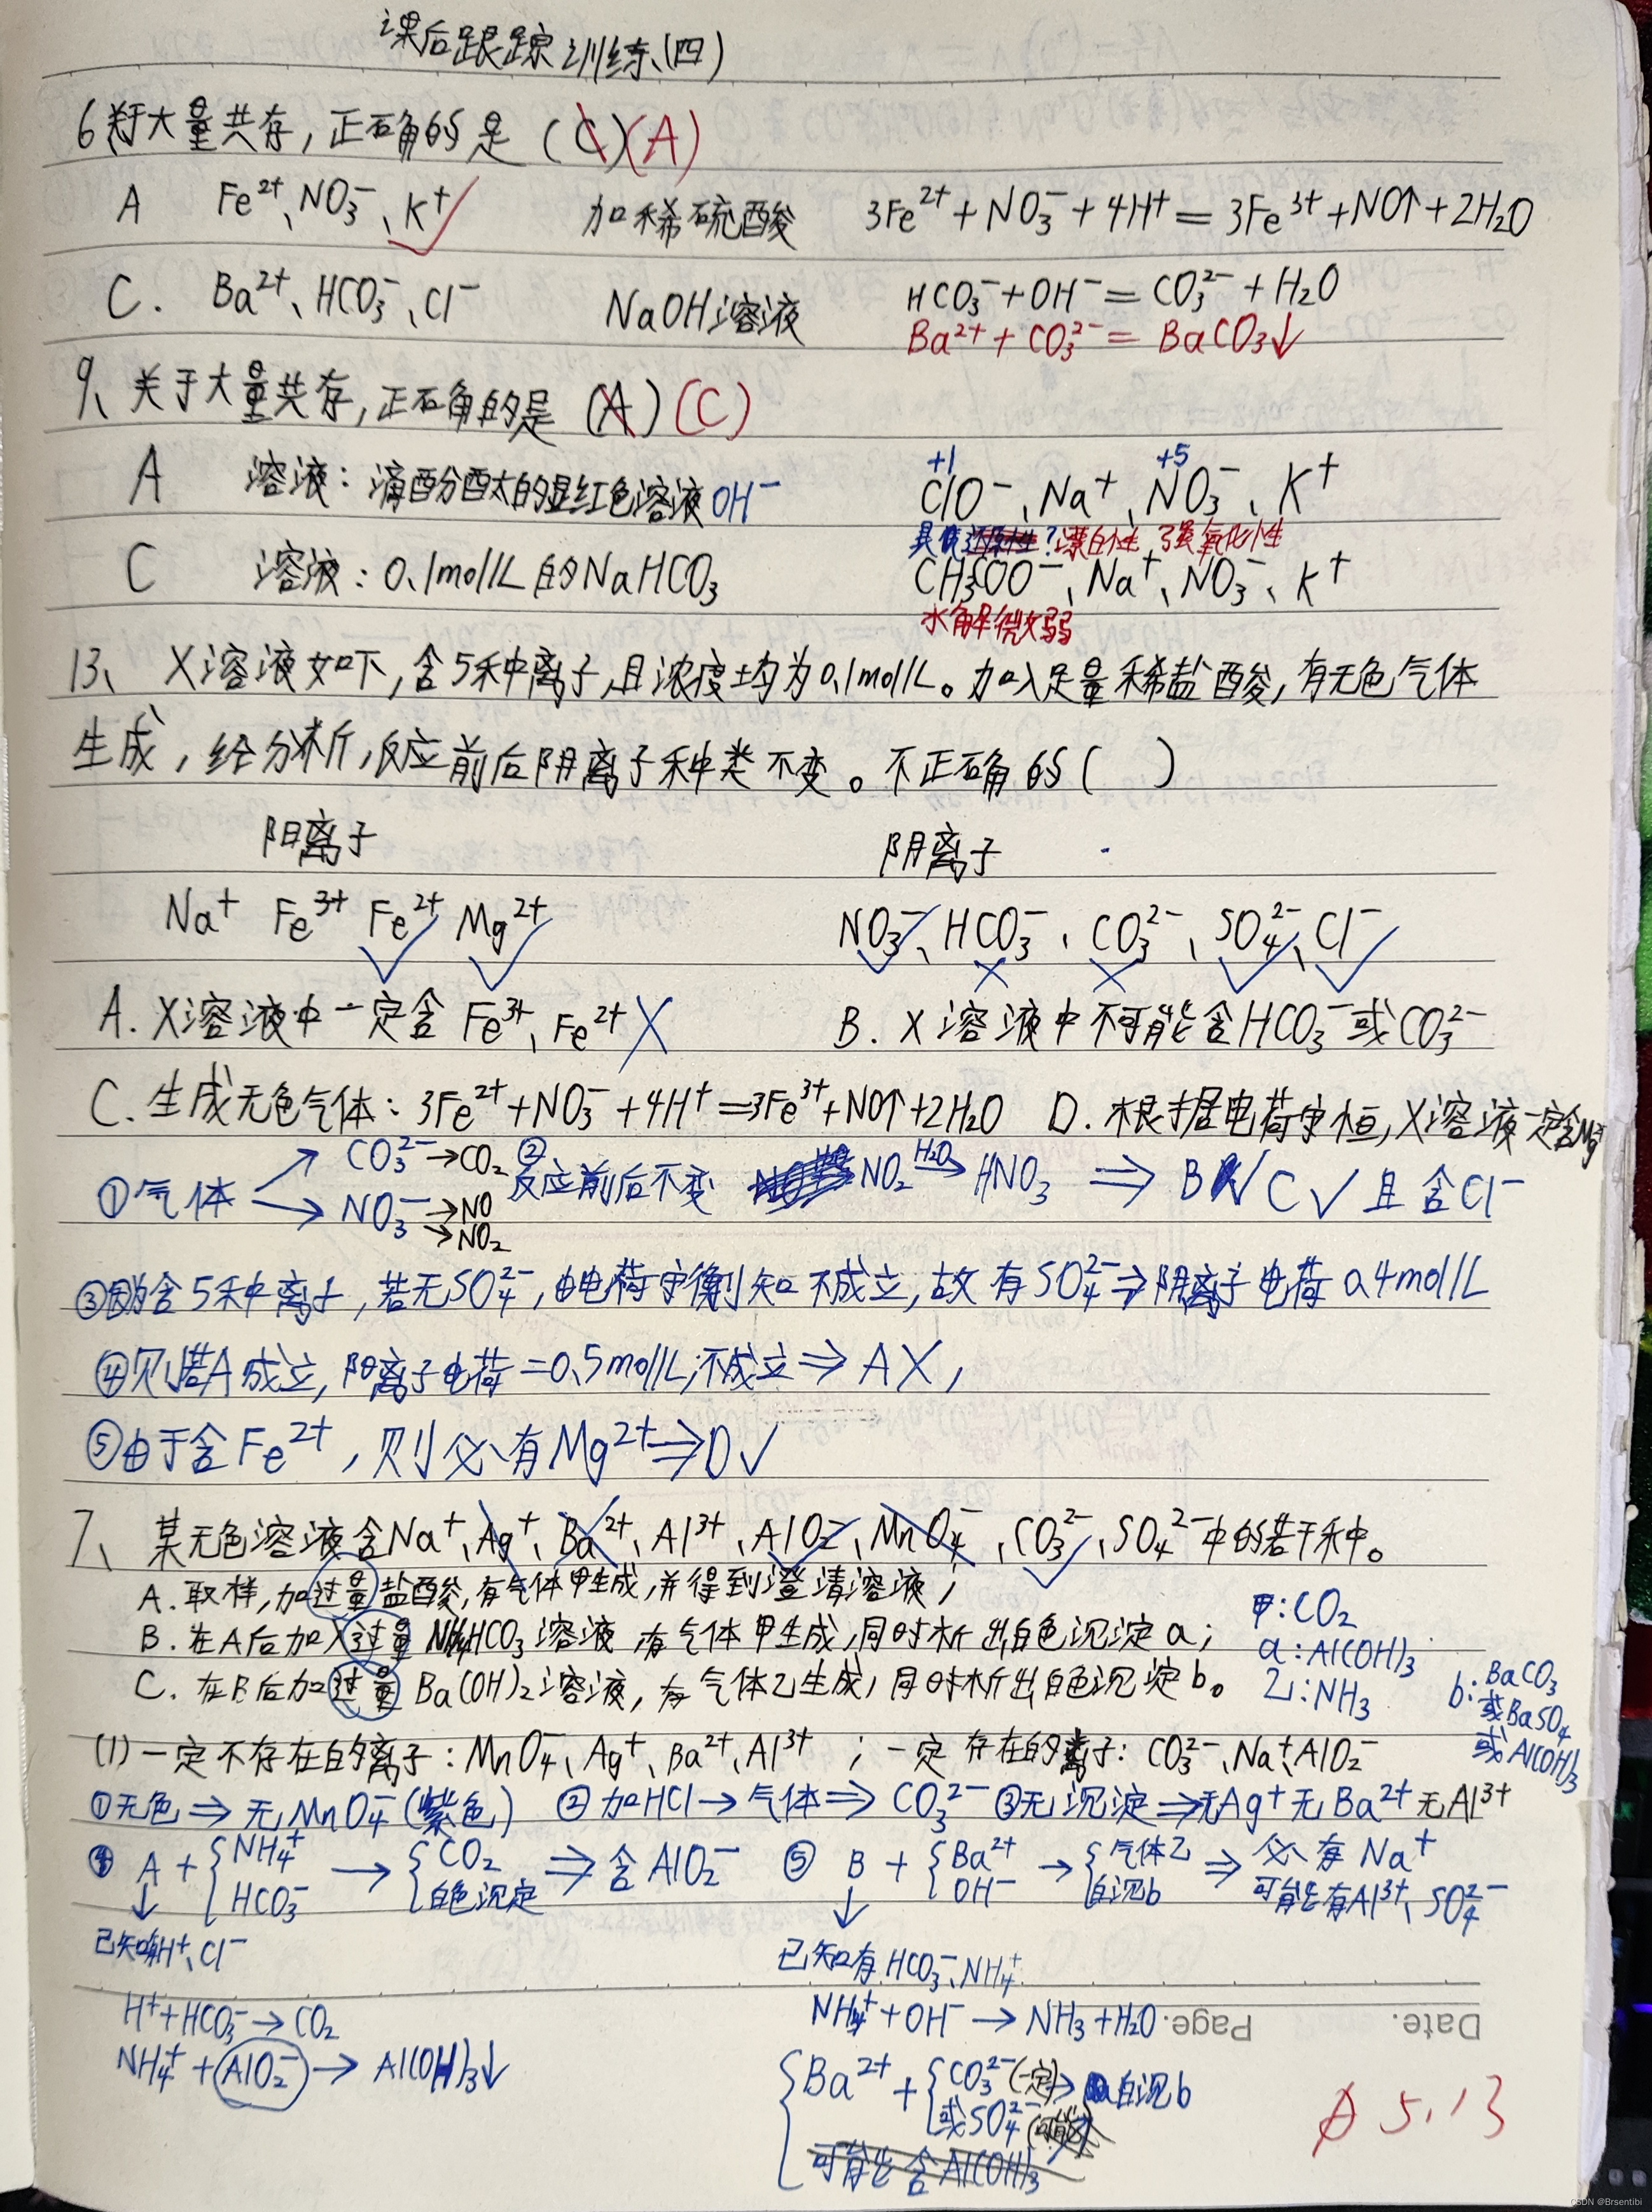 课后跟踪训练(四)
6 关于大量共存,正确的是 (C)(A)
A Fe²⁺、NO₃⁻、K⁺ 加稀硫酸 3Fe²⁺+NO₃⁻+4H⁺=3Fe³⁺+NO↑+2H₂O
C. Ba²⁺、HCO₃⁻、Cl⁻ NaOH溶液 HCO₃⁻+OH⁻=CO₃²⁻+H₂O
Ba²⁺+CO₃²⁻=BaCO₃↓
9、关于大量共存,正确的是 (A)(C)
+1 +5
A 溶液:滴酚酞的显红色溶液 OH⁻ ClO⁻、Na⁺、NO₃⁻、K⁺
具有还原性?漂白性 强氧化性
C 溶液:0.1mol/L的NaHCO₃ CH₃COO⁻、Na⁺、NO₃⁻、K⁺
水解微弱
13、X溶液如下,含5种离子,且浓度均为0.1mol/L。加入足量稀盐酸,有无色气体
生成,经分析,反应前后阴离子种类不变。不正确的( )
阳离子 阴离子
Na⁺ Fe³⁺ Fe²⁺ Mg²⁺ NO₃⁻、HCO₃⁻、CO₃²⁻、SO₄²⁻、Cl⁻
A. X溶液中一定含Fe³⁺、Fe²⁺ X B. X溶液中不可能含HCO₃⁻或CO₃²⁻
C. 生成无色气体:3Fe²⁺+NO₃⁻+4H⁺=3Fe³⁺+NO↑+2H₂O D. 根据电荷守恒,X溶液一定含Mg²⁺
①气体 CO₃²⁻→CO₂ NO₃⁻→NO →NO₂ ②反应前后不变 NO₂ H₂O→ HNO₃ ⇒ B✓ C✓ 且含Cl⁻
③因为含5种离子,若无SO₄²⁻,由电荷守衡则知不成立,故有SO₄²⁻⇒阴离子电荷0.4mol/L
④则若A成立,阳离子电荷=0.5mol/L,不成立⇒AX,
⑤由于含Fe²⁺,则必有Mg²⁺⇒D✓
7、某无色溶液含Na⁺、Ag⁺、Ba²⁺、Al³⁺、AlO₂⁻、MnO₄⁻、CO₃²⁻、SO₄²⁻中的若干种。
A. 取样,加过量盐酸,有气体甲生成,并得到澄清溶液;
B. 在A后加入过量NH₄HCO₃溶液 有气体甲生成,同时析出白色沉淀a;
C. 在B后加过量Ba(OH)₂溶液,有气体乙生成,同时析出白色沉淀b。
甲:CO₂
a:Al(OH)₃
乙:NH₃
b:BaCO₃
或BaSO₄
或Al(OH)₃
(1)一定不存在的离子:MnO₄⁻、Ag⁺、Ba²⁺、Al³⁺ ;一定存在的离子:CO₃²⁻、Na⁺、AlO₂⁻
①无色⇒无MnO₄⁻(紫色) ②加HCl→气体⇒CO₃²⁻ ③无沉淀⇒无Ag⁺无Ba²⁺无Al³⁺
④ A+{NH₄⁺ HCO₃⁻ →{CO₂ 白色沉淀 ⇒含AlO₂⁻ ⑤ B+{Ba²⁺ OH⁻ →{气体乙 白沉b ⇒必有Na⁺ 可能有Al³⁺、SO₄²⁻
↓ ↓
已知有H⁺、Cl⁻ 已知有HCO₃⁻、NH₄⁺
H⁺+HCO₃⁻→CO₂ NH₄⁺+OH⁻→NH₃+H₂O
NH₄⁺+AlO₂⁻→Al(OH)₃↓
{Ba²⁺+{CO₃²⁻(一定) 或SO₄²⁻(可能) → 白沉b
可能含Al(OH)₃
Page. Date.
5.13
CSDN @Brsentibi